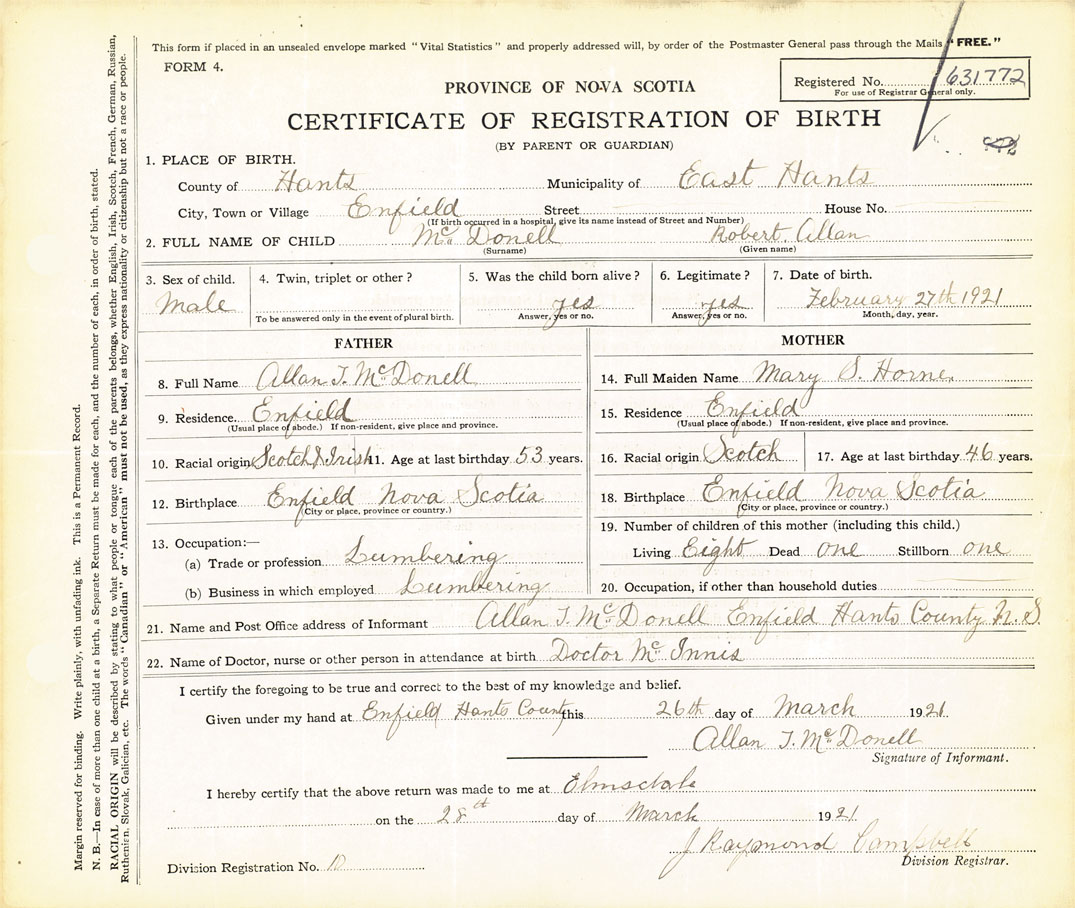 This form if placed in an unsealed envelope marked "Vital Statistics" and properly addressed will, by order of the Postmaster General pass through the Mails "FREE."
FORM 4.
Registered No. 631772
For use of Registrar General only.
PROVINCE OF NOVA SCOTIA
CERTIFICATE OF REGISTRATION OF BIRTH
(BY PARENT OR GUARDIAN)
1. PLACE OF BIRTH.
County of Hants Municipality of East Hants
City, Town or Village Enfield Street House No.
(If birth occurred in a hospital, give its name instead of Street and Number)
2. FULL NAME OF CHILD McDonell Robert Allan
(Surname) (Given name)
3. Sex of child. 4. Twin, triplet or other? 5. Was the child born alive? 6. Legitimate? 7. Date of birth.
Male yes yes February 27th 1921
To be answered only in the event of plural birth. Answer, yes or no. Answer, yes or no. Month, day, year.
FATHER
8. Full Name Allan J. McDonell
9. Residence. Enfield
(Usual place of abode.) If non-resident, give place and province.
10. Racial origin Scotch & Irish 11. Age at last birthday 53 years.
12. Birthplace Enfield Nova Scotia
(City or place, province or country.)
13. Occupation:—
(a) Trade or profession Lumbering
(b) Business in which employed Lumbering
MOTHER
14. Full Maiden Name Mary S. Horne.
15. Residence Enfield
(Usual place of abode.) If non-resident, give place and province.
16. Racial origin Scotch 17. Age at last birthday 46 years.
18. Birthplace Enfield Nova Scotia
(City or place, province or country.)
19. Number of children of this mother (including this child.)
Living Eight Dead one Stillborn one
20. Occupation, if other than household duties
21. Name and Post Office address of Informant Allan J. McDonell Enfield Hants County N.S.
22. Name of Doctor, nurse or other person in attendance at birth Doctor McInnis
I certify the foregoing to be true and correct to the best of my knowledge and belief.
Given under my hand at Enfield Hants County this 26th day of March 1921.
Allan J. McDonell
Signature of Informant.
I hereby certify that the above return was made to me at Elmsdale
on the 28th day of March 1921
J Raymond Campbell
Division Registrar.
Division Registration No. 10
Margin reserved for binding. Write plainly, with unfading ink. This is a Permanent Record.
N. B.—In case of more than one child at a birth, a Separate Return must be made for each, and the number of each, in order of birth, stated.
RACIAL ORIGIN will be described by stating to what people or tongue each of the parents belongs, whether English, Irish, Scotch, French, German, Russian,
Ruthenian, Slovak, Galician, etc. The words "Canadian" or "American" must not be used, as they express nationality or citizenship but not a race or people.